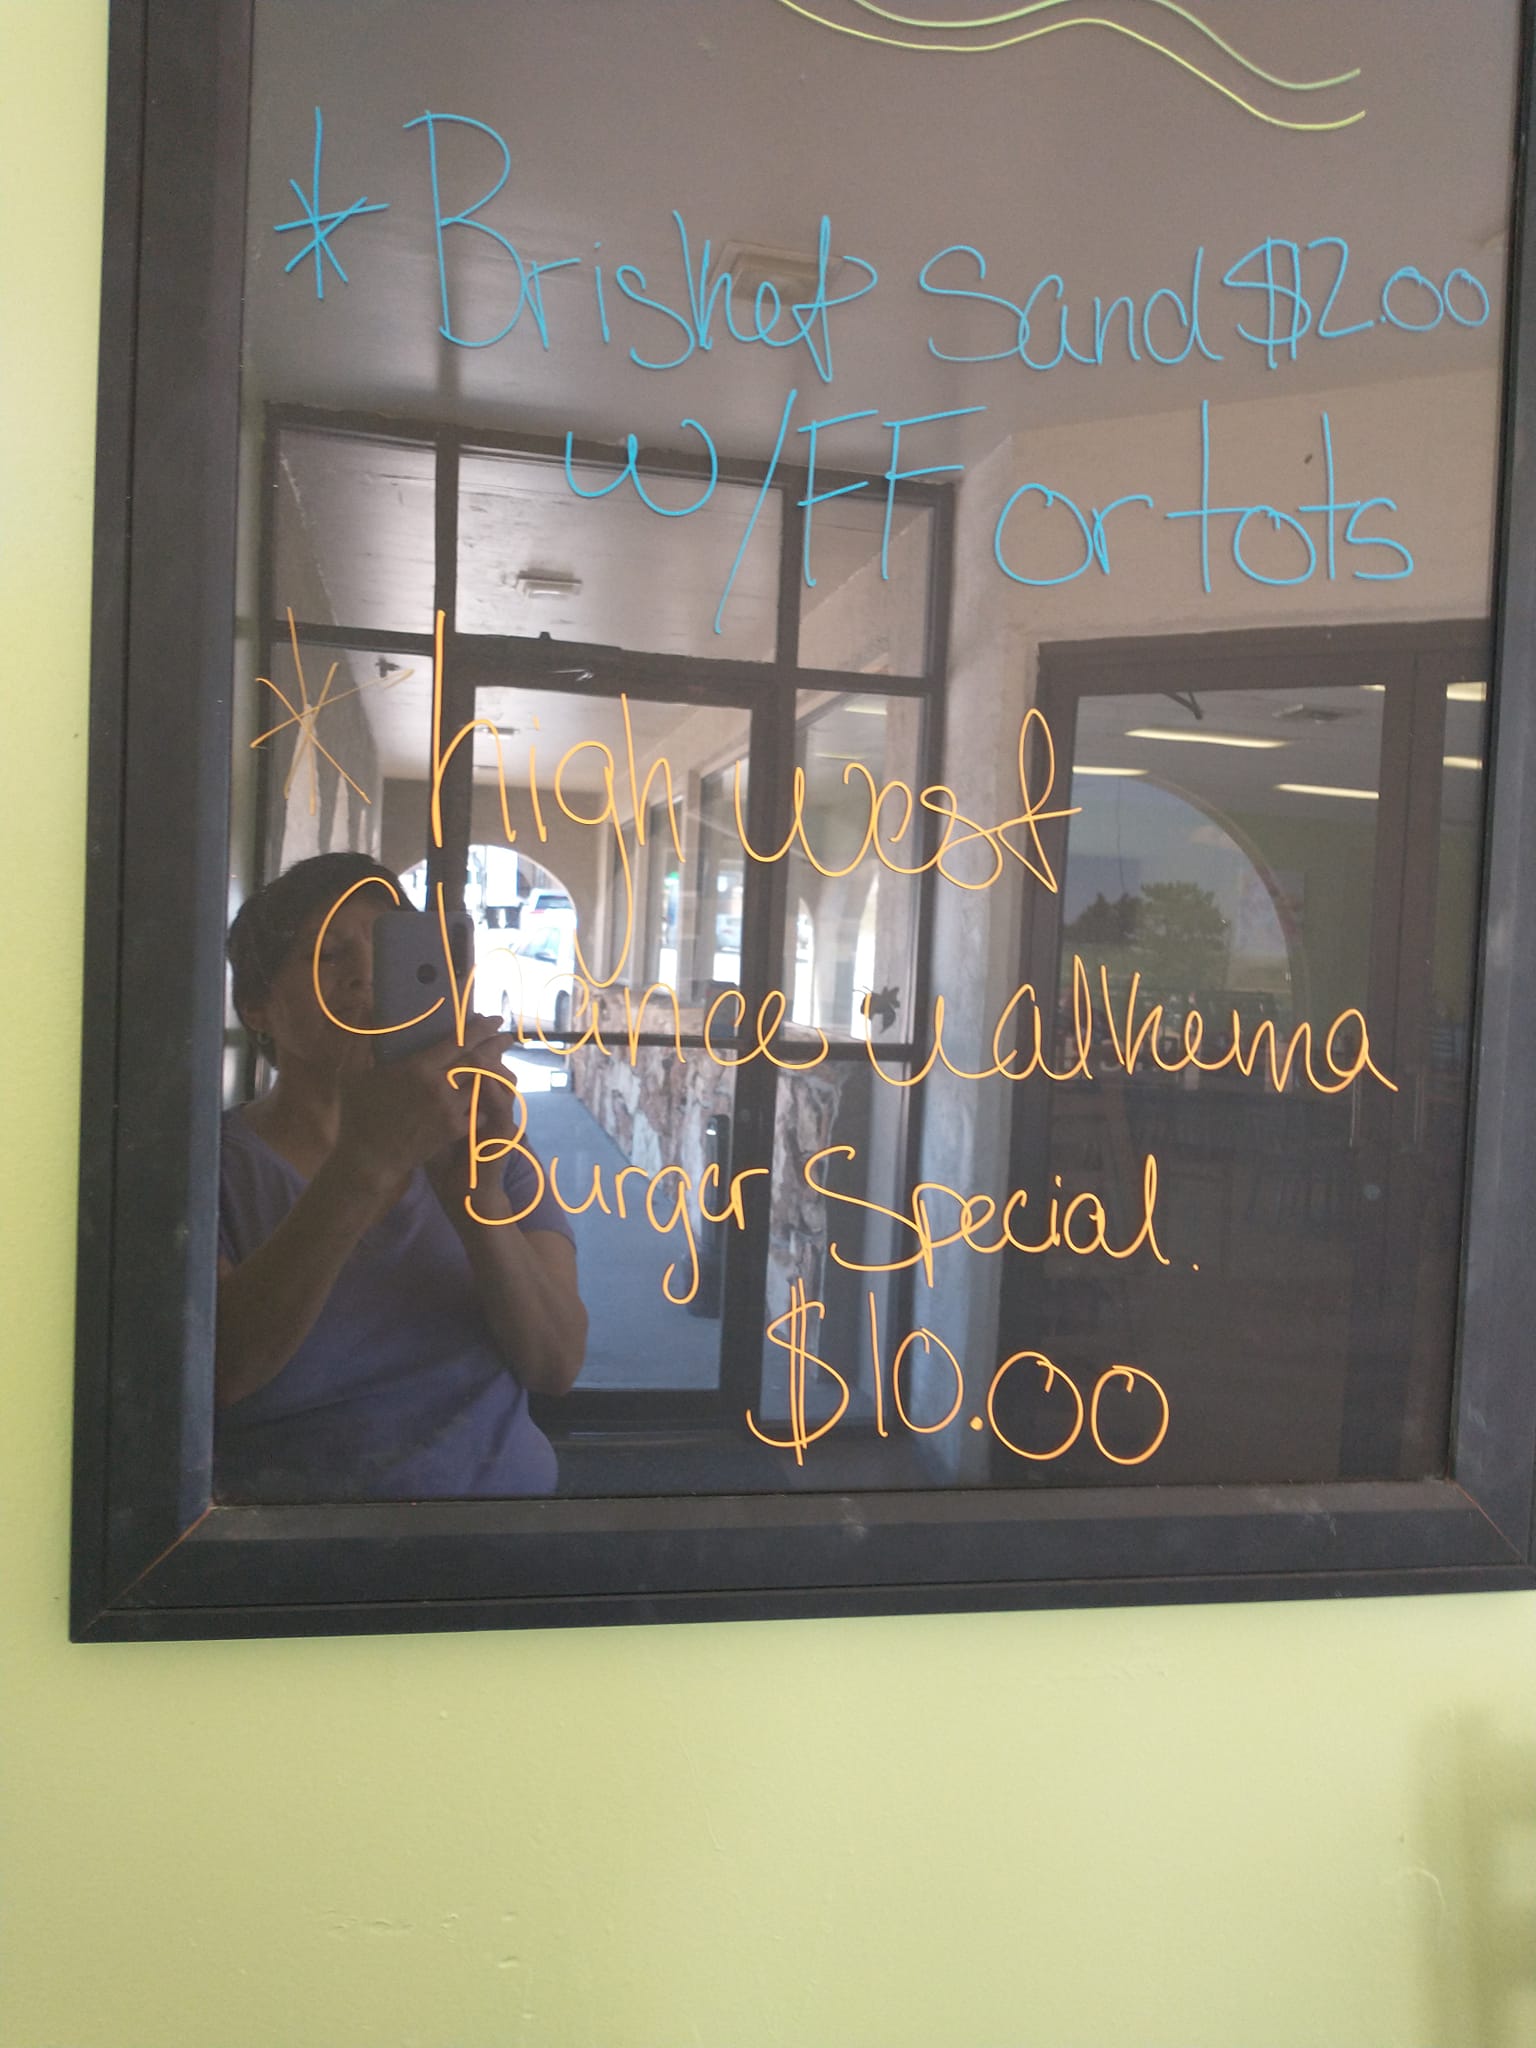 * Brisket Sand $12.00
w/FF or tots
* high west
Chance walkema
Burger Special.
$10.00